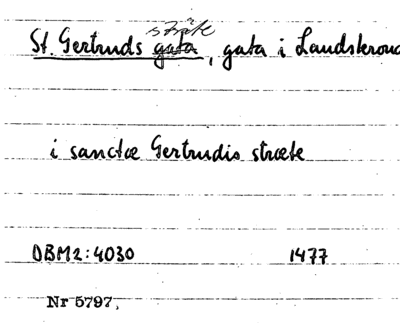 sträte
St. Gertruds gata, gata i Landskrona
i sanctæ Gertrudis stræte
DBM2:4030 1477
Nr 5797.